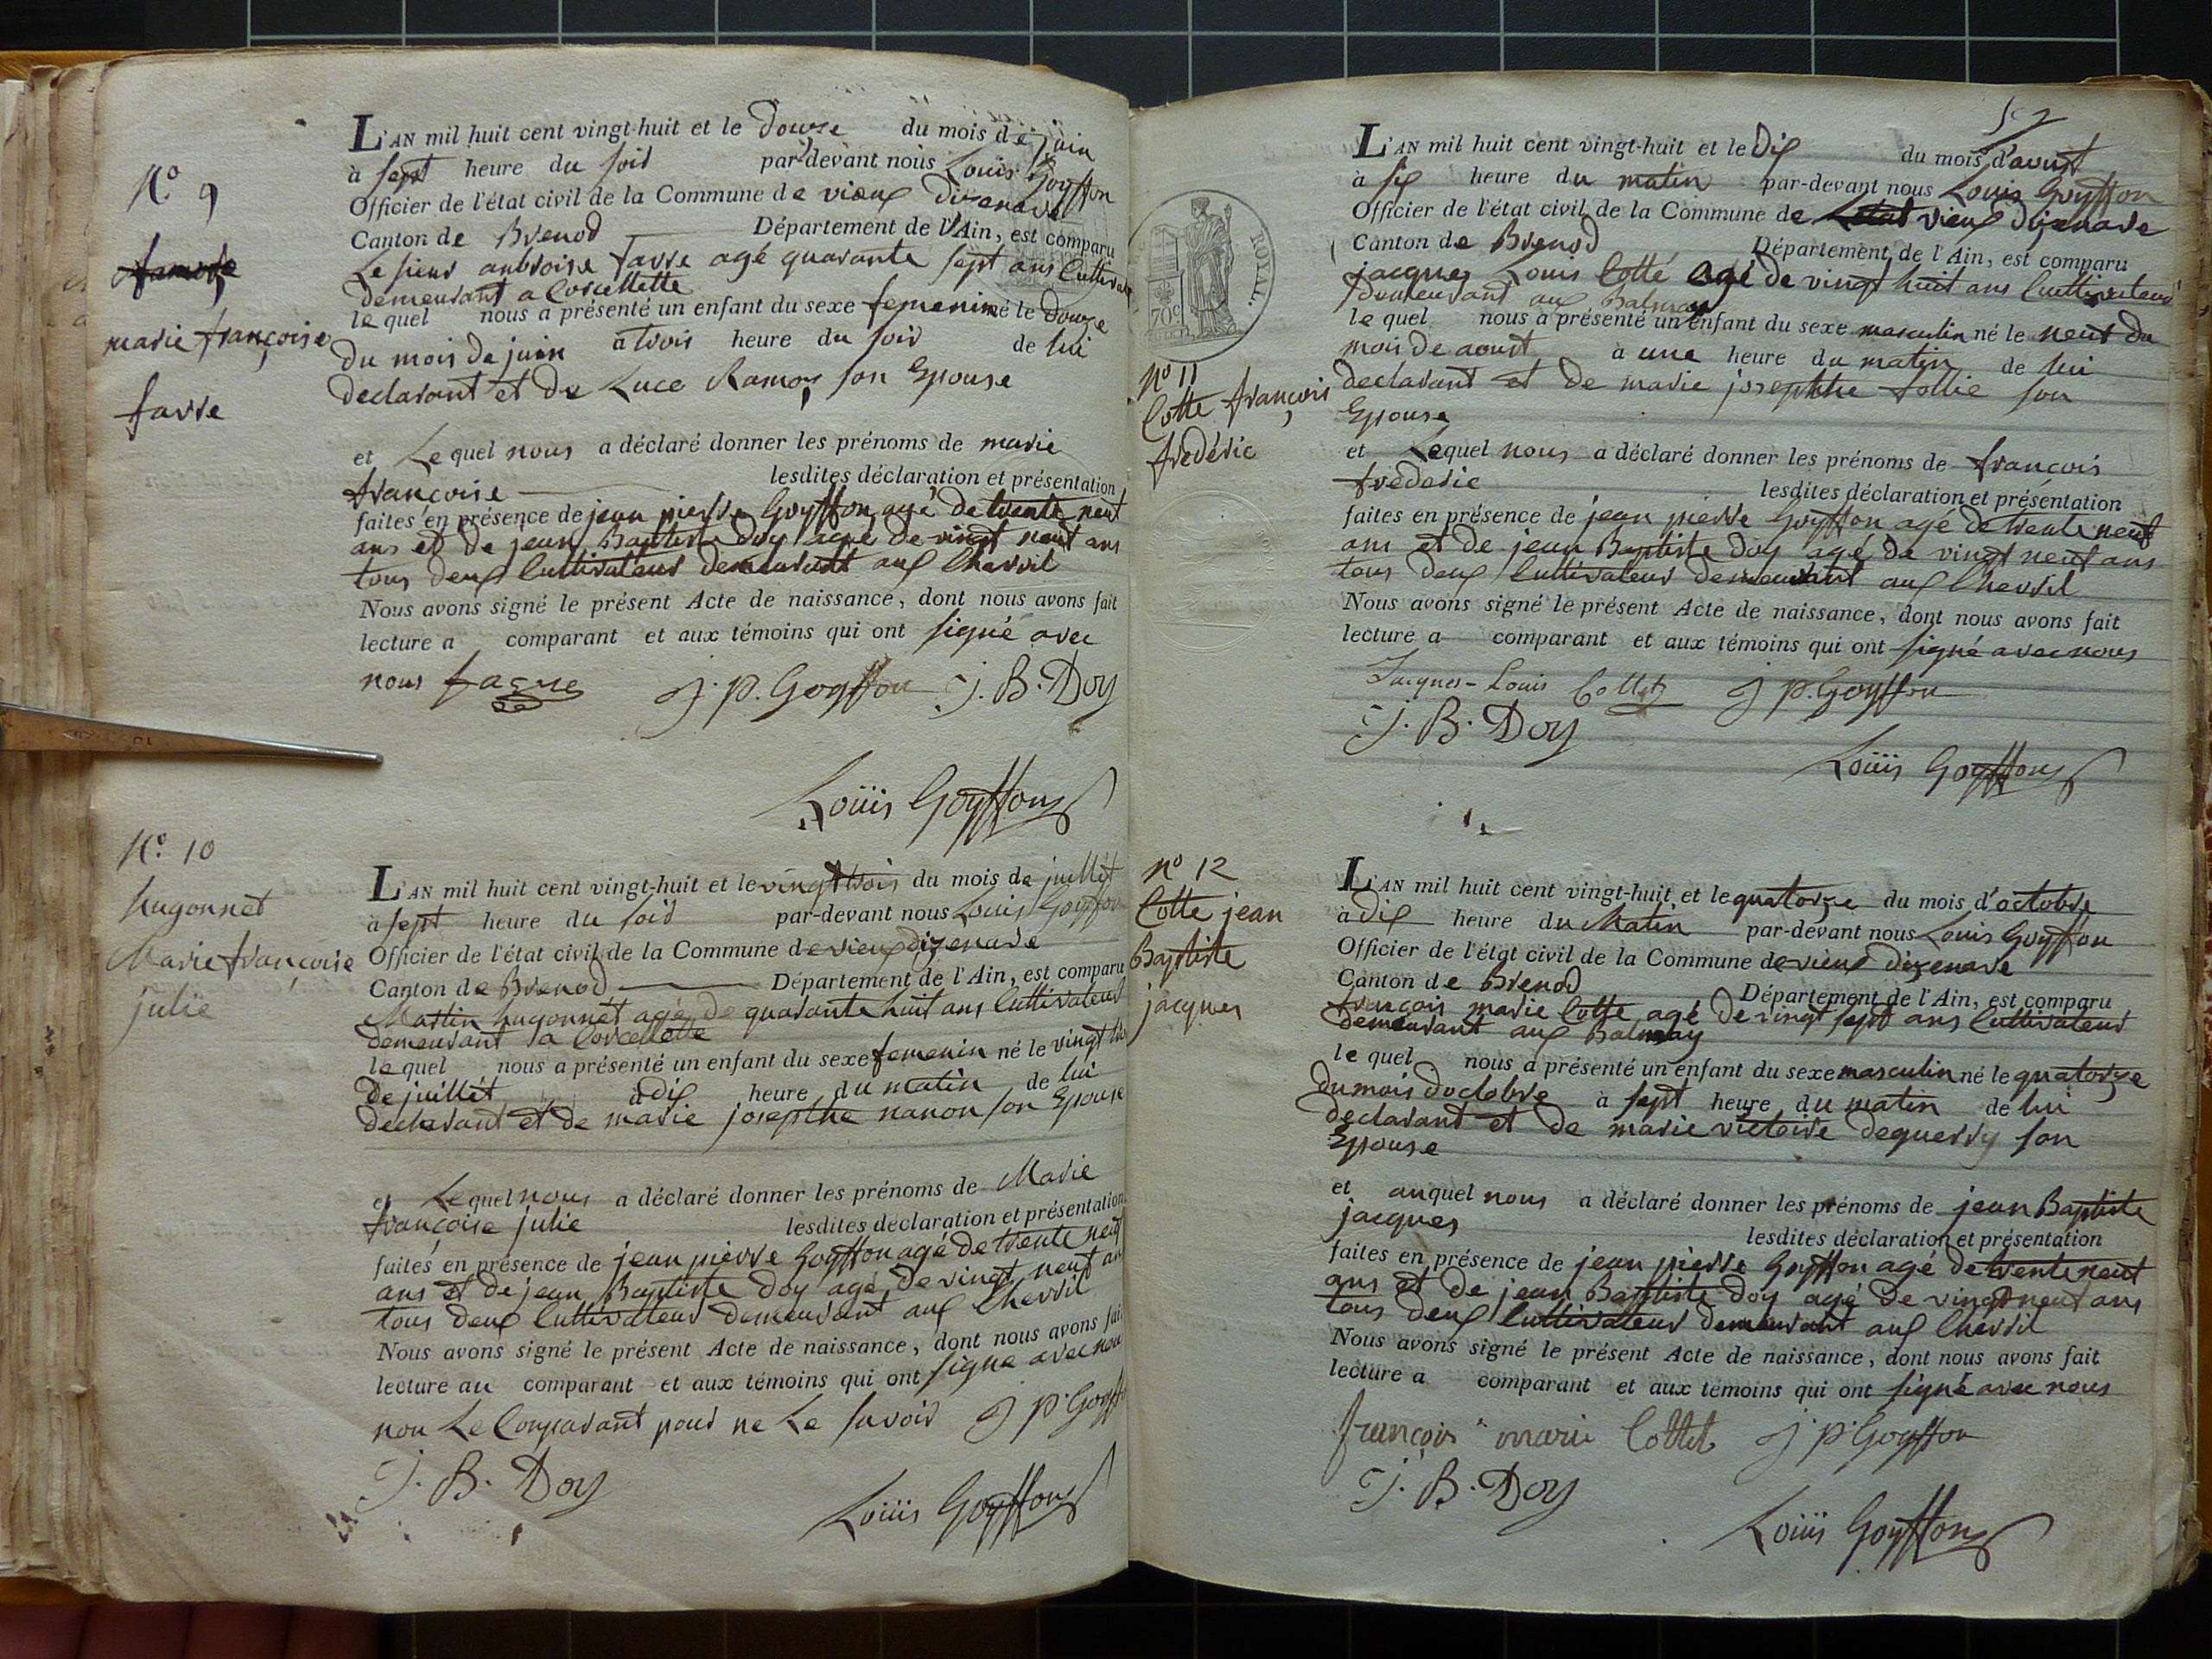 N.o 9
marie françoise
favre
L'AN mil huit cent vingt-huit et le douze du mois de juin
à sept heure du soir par-devant nous Louis Goyffon
Officier de l'état civil de la Commune de vieux dizenave
Canton de Brenod Département de l'Ain, est comparu
Le sieur anbroise favre agé quarante sept ans Cultivateur
demeurant a Corcellette
le quel nous a présenté un enfant du sexe femenin né le douze
du mois de juin à trois heure du soir de lui
declarant et de Luce Ramoy son Epouse
et Le quel nous a déclaré donner les prénoms de marie
françoise lesdites déclaration et présentation
faites en présence de jean pierre Goyffon agé de trente neuf
ans et de jean Baptiste Doy agé de vingt neuf ans
tous deux Cultivateur demeurant aux Chevril
Nous avons signé le présent Acte de naissance, dont nous avons fait
lecture a comparant et aux témoins qui ont signé avec
nous J. P. Goyffon J. B. Doy
Loüis Goyffon
N.o 10
hugonnet
Marie françoise
julie
L'AN mil huit cent vingt-huit et le vingt trois du mois de juillet
à sept heure du soir par-devant nous Louis Goyffon
Officier de l'état civil de la Commune de vieux dizenave
Canton de Brenod Département de l'Ain, est comparu
Martin hugonnet agé de quarante huit ans Cultivateur
demeurant a Corcellette
le quel nous a présenté un enfant du sexe femenin né le vingt
de juillet à dix heure du matin de lui
declarant et de marie josephte nanon son Epouse
et Le quel nous a déclaré donner les prénoms de Marie
françoise julie lesdites déclaration et présentation
faites en présence de jean pierre Goyffon agé de trente neuf
ans et de jean Baptiste Doy agé de vingt neuf an
tous deux Cultivateur demeurant aux Chevril
Nous avons signé le présent Acte de naissance, dont nous avons fait
lecture au comparant et aux témoins qui ont signe avec nou
non Le Comparant pour ne Le savoir J P Goyff
J. B. Doy
Loüis Goyffon
52
ROYAL.
70c
N.o 11
Cotte françois
frederic
L'AN mil huit cent vingt-huit et le Dix du mois d'aoust
à six heure du matin par-devant nous Louis Goyffon
Officier de l'état civil de la Commune de vieux dizenave
Canton de Brenod Département de l'Ain, est comparu
jacques Louis Cotte agé de vingt huit ans Cultivateur
demeurant aux Balmay
le quel nous a présenté un enfant du sexe masculin né le neuf du
mois de aoust à une heure du matin de lui
declarant et de marie josephte follie son
Epouse
et Lequel nous a déclaré donner les prénoms de françois
frederic lesdites déclaration et présentation
faites en présence de jean pierre Goyffon agé de trente neuf
ans et de jean Baptiste Doy agé de vingt neuf ans
tous deux Cultivateur demeurant aux Chevril
Nous avons signé le présent Acte de naissance, dont nous avons fait
lecture a comparant et aux témoins qui ont signé avec nous
Jacques-Louis Collet J P. Goyffon
J. B. Doy
Loüis Goyffon
no 12
Cotte jean
Baptiste
jacques
L'AN mil huit cent vingt-huit et le quatorze du mois d'octobre
à dix heure du Matin par-devant nous Louis Goyffon
Officier de l'état civil de la Commune de vieux dizenave
Canton de Brenod Département de l'Ain, est comparu
francois marie Cotte agé de vingt sept ans Cultivateur
demeurant aux Balmay
le quel nous a présenté un enfant du sexe masculin né le quatorze
du mois doctobre à sept heure du matin de lui
declarant et de marie victoire dequerry son
Epouse
et auquel nous a déclaré donner les prénoms de jean Baptiste
jacques lesdites déclaration et présentation
faites en présence de jean pierre Goyffon agé de trente neuf
ans et de jean Baptiste Doy agé de vingt neuf ans
tous deux Cultivateur demeurant aux Chevril
Nous avons signé le présent Acte de naissance, dont nous avons fait
lecture a comparant et aux témoins qui ont signé avec nous
françois marie Collet J P Goyffon
J. B. Doy
Loüis Goyffon